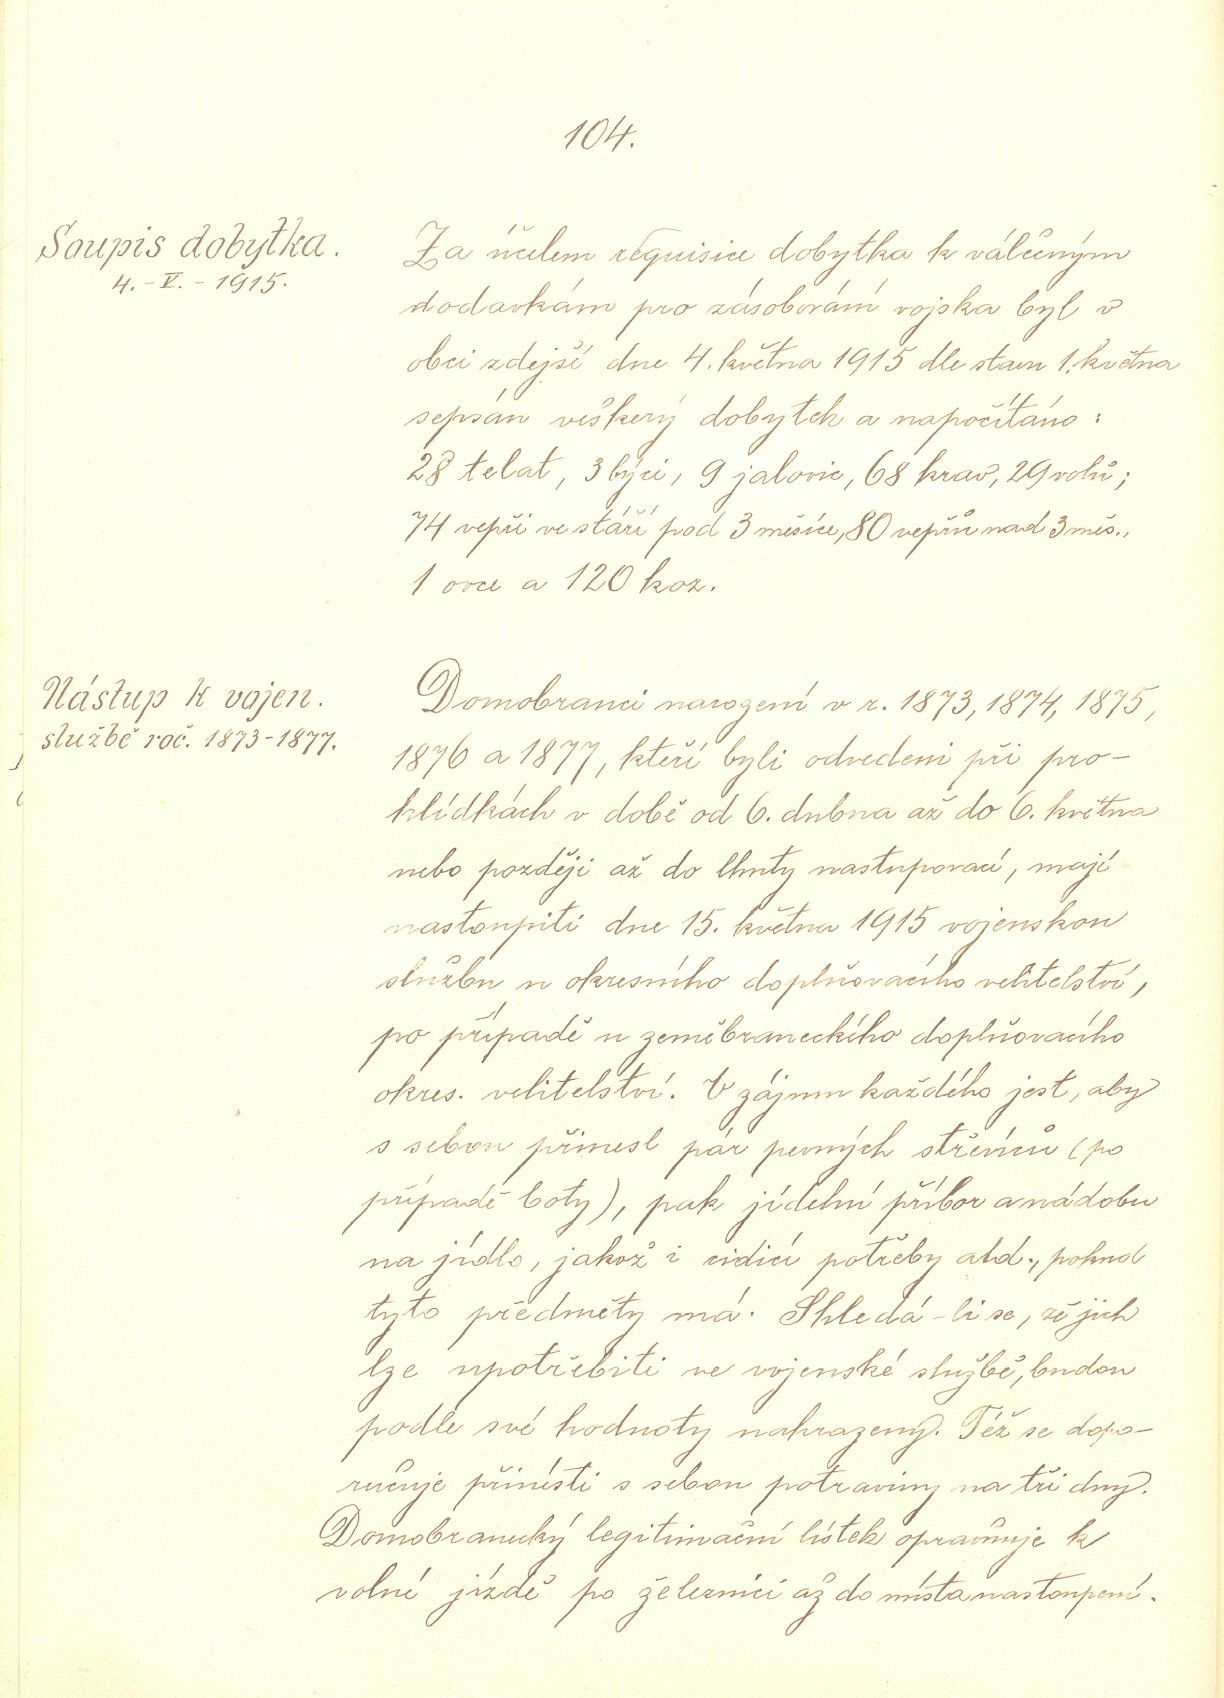 104.
Soupis dobytka.
4.-V.-1915.
Za účelem requisice dobytka k válečným
dodavkám pro zásobování vojska byl v
obci zdejší dne 4. května 1915 dle stavu 1. května
sepsán veškerý dobytek a napočítáno:
28 telat, 3 býci, 9 jalovic, 68 krav, 29 volů;
74 vepři ve stáří pod 3 měsíce, 80 vepřů nad 3 měs.,
1 ovce a 120 koz.
Nástup k vojen.
službě roč. 1873-1877.
Domobranci narození v r. 1873, 1874, 1875,
1876 a 1877, kteří byli odvedeni při pro-
hlídkách v době od 6. dubna až do 6. května
nebo později až do lhůty nastupovací, mají
nastoupiti dne 15. května 1915 vojenskou
službu u okresního doplňovacího velitelství,
po případě u zeměbraneckého doplňovacího
okres. velitelství. V zájmu každého jest, aby
s sebou přinesl pár pevných střevíců (po
případě boty), pak jídelní příbor a nádobu
na jídlo, jakož i cidicí potřeby atd., pokud
tyto předměty má. Shledá-li se, že jich
lze upotřebiti ve vojenské službě, budou
podle své hodnoty nahrazeny. Též se dopo-
ručuje přinésti s sebou potraviny na tři dny.
Domobranecký legitimační lístek opravňuje k
volné jízdě po železnici až do místa nastoupení.